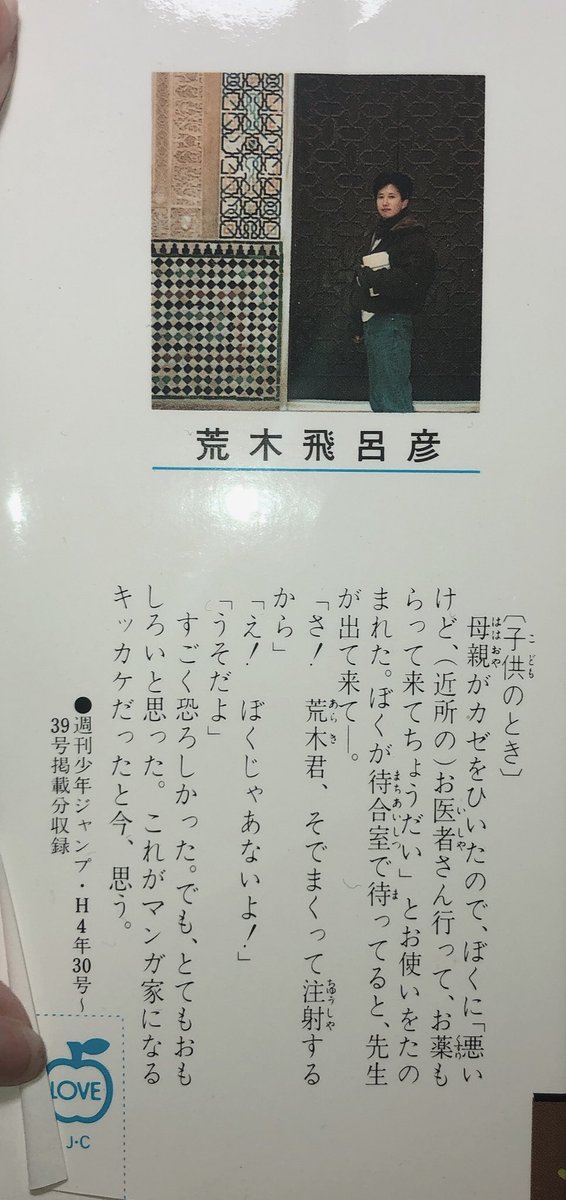 荒木飛呂彦
こども
〔子供のとき〕
ははおや
母親がカゼをひいたので、ぼくに「悪い
いしゃ くすり
けど、（近所の）お医者さん行って、お薬も
らって来てちょうだい」とお使いをたの
まちあいしつ ま
まれた。ぼくが待合室で待ってると、先生
が出て来て―。
あらき ちゅうしゃ
「さ！　荒木君、そでまくって注射する
から」
「え！　ぼくじゃあないよ！」
「うそだよ」
すごく恐ろしかった。でも、とてもおも
しろいと思った。これがマンガ家になる
キッカケだったと今、思う。
●週刊少年ジャンプ・H4年30号〜
39号掲載分収録
LOVE
J・C